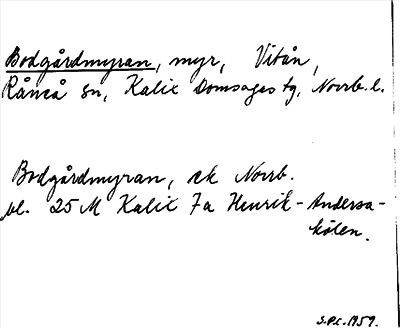 Bodgårdmyran, myr, Vitån,
Råneå sn, Kalix Domsagas tg, Norrb. l.
Bodgårdmyran, ek Norrb.
bl. 25 M Kalix 7a Henrik-Andersa-
kölen.
S.P.L. 1959.